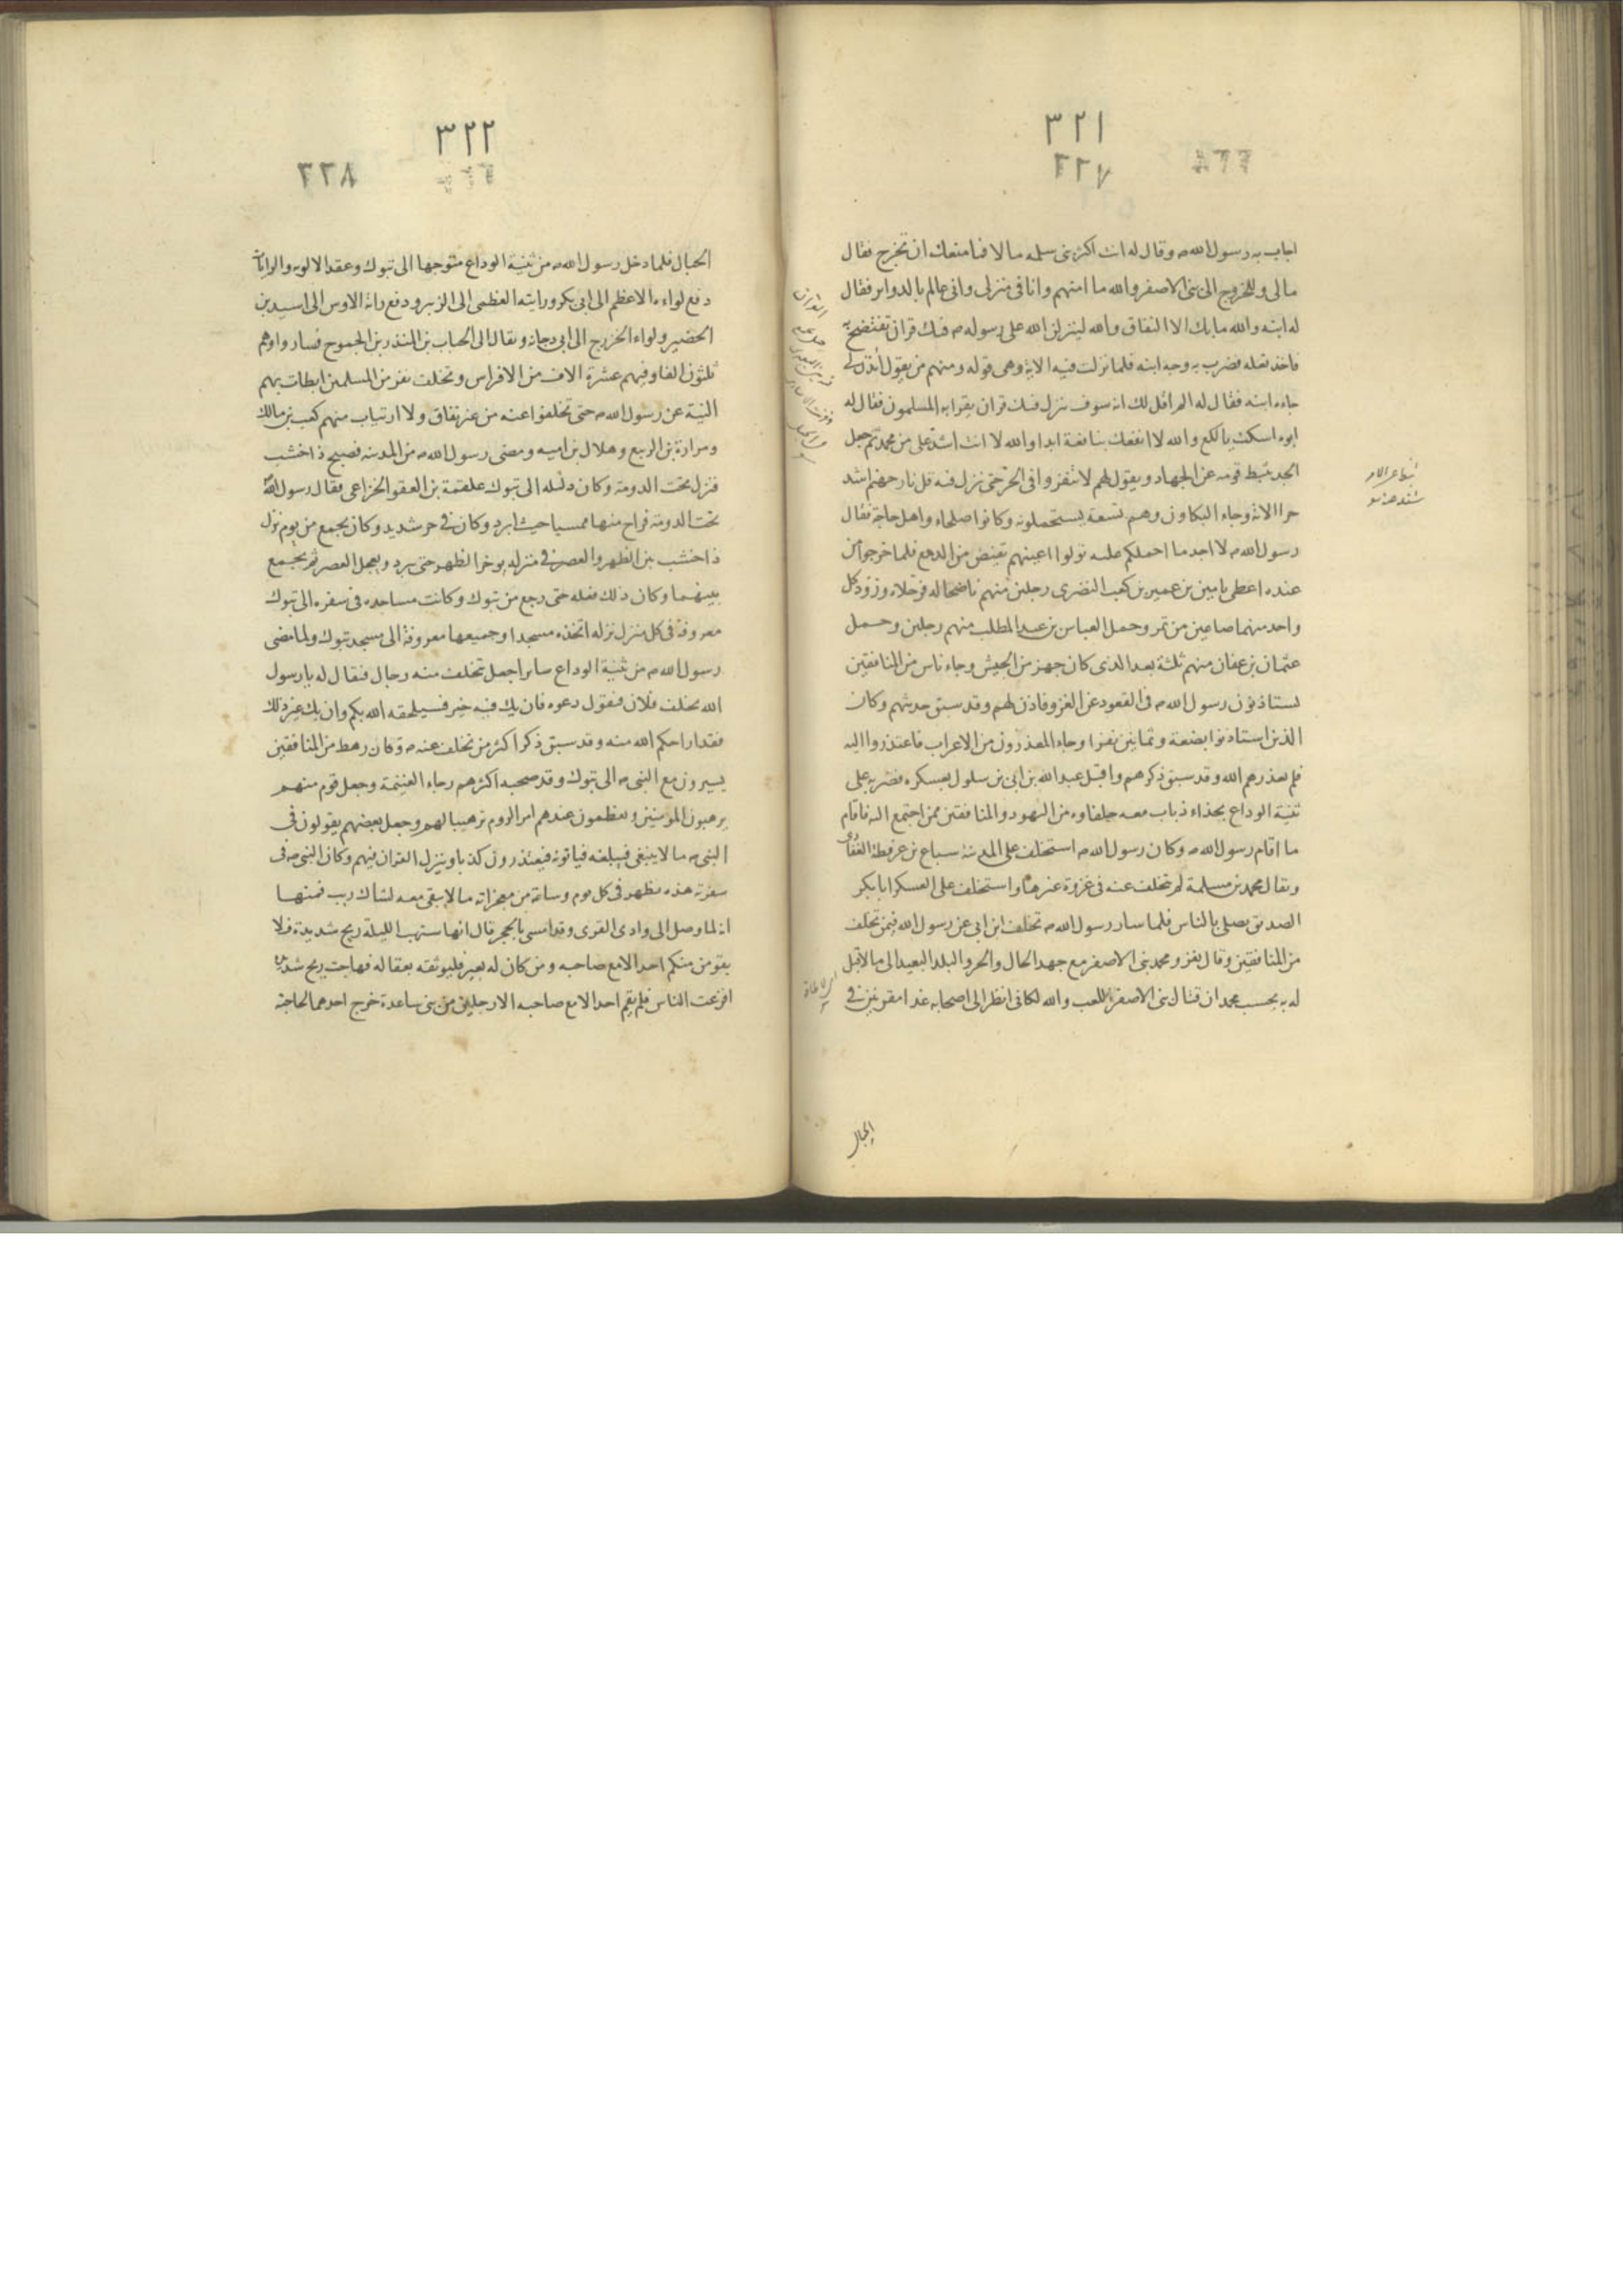 ٣٢١
٣٢٧
اجاب به رسول الله ص وقال له انت اكثر بنى سلمه مالا فما منعك ان تخرج فقال
مالى وللخروج الى بنى الاصفر والله ما امنهم وانا فى منزلى وانى عالم بالدواير فقال
له ابنه والله مابك الا النفاق والله لينزلن الله على رسوله ص فيك قران تفتضح به
فاخذ نعله فضرب به وجه ابنه فلما نزلت فيه الاية وهى قوله ومنهم من يقول ائذن لى
جاءه ابنه فقال له الم اقل لك انه سوف ينزل فيك قران يقرا به المسلمون فقال له
ابوه اسكت يالكع والله لا انفعك بنافعة ابدا والله لا انت اشد على من محمد ثم جعل
الجد يثبط قومه عن الجهاد ويقول لهم لا تنفروا فى الحر حتى نزل فيه قل نار جهنم اشد
حرا الاية وجاء البكاون وهم تسعة يستحملونه وكانوا صلحاء واهل حاجة فقال
رسول الله ص لا اجد ما احملكم عليه تولوا اعينهم تفيض من الدمع فلما خرجوا من
عنده اعطى يامين بن عمير بن كعب النضرى رجلين منهم ناضحا له فرحلاه وزود كل
واحد منهما صاعين من تمر وحمل العباس بن عبد المطلب منهم رجلين وحمل
عثمان بن عفان منهم ثلثة بعد الذى كان جهز من الجيش وجاء ناس من المنافقين
يستاذنون رسول الله ص فى القعود عن الغزو فاذن لهم وقد سبق حديثهم وكان
الذين استاذنوا بضعة وثمانين نفرا وجاء المعذرون من الاعراب فاعتذروا اليه
فلم يعذرهم الله وقد سبق ذكرهم واقبل عبد الله بن ابى بن سلول بعسكره فضربه على
ثنية الوداع بحذاء ذباب معه حلفاوه من اليهود والمنافقين ممن اجتمع اليه فاقام
ما اقام رسول الله ص وكان رسول الله ص استخلف على المدينة سباع بن عرفطة الغفارى
ويقال محمد بن مسلمة لم يتخلف عنه فى غزوة غيرها واستخلف على العسكر ابا بكر
الصديق يصلى بالناس فلما سار رسول الله ص تخلف ابن ابى عن رسول الله فيمن تخلف
من المنافقين وقال يغزو محمد بنى الاصفر مع جهد الحال والحر والبلد البعيد الى ما لا قبل
له به يحسب محمد ان قتال بنى الاصفر اللعب والله لكانى انظر الى اصحابه غدا مقرنين فى
الحبال
٣٢٢
٣٢٨
الحبال فلما دخل رسول الله ص من ثنية الوداع متوجها الى تبوك وعقد الالويه والرايات
دفع لواءه الاعظم الى ابى بكر ورايته العظمى الى الزبير ودفع راية الاوس الى اسيد بن
الحضير ولواء الخزرج الى ابى دجانه ويقال الى الحباب بن المنذر بن الجموح فساروا وهم
ثلثون الفا وفيهم عشرة الاف من الافراس وتخلف نفر من المسلمين ابطات بهم
النية عن رسول الله ص حتى تخلفوا عنه من غير نفاق ولا ارتياب منهم كعب بن مالك
ومرارة بن الربيع وهلال بن اميه ومضى رسول الله ص من المدينه فصبح ذا خشب
فنزل تحت الدومة وكان دليله الى تبوك علقمة بن العفو الخزاعى فقال رسول الله
تحت الدومة فراح منها ممسيا حيث ابرد وكان فى حر شديد وكان يجمع من يوم نزل
ذا خشب بين الظهر والعصر فى منزله يوخر الظهر حتى يبرد ويعجل العصر ثم يجمع
بينهما وكان ذلك فعله حتى رجع من تبوك وكانت مساجده فى سفره الى تبوك
معروفة فى كل منزل نزله اتخذه مسجدا وجميعها معروفة الى مسجد تبوك ولما مضى
رسول الله ص من ثنية الوداع سايرا جعل يتخلف منه رجال فيقال له يا رسول
الله تخلف فلان فيقول دعوه فان يك فيه خير فسيلحقه الله بكم وان يك غير ذلك
فقد اراحكم الله منه وقد سبق ذكر اكثر من تخلف عنه ص وكان رهط من المنافقين
يسيرون مع النبى ص الى تبوك وقد صحبه اكثرهم رجاء الغنيمة وجعل قوم منهم
يرهبون المومنين ويعظمون عندهم امر الروم ترهيبا لهم وجعل بعضهم يقولون فى
النبى ص ما لا ينبغى فيبلغه فياتونه فيعتذرون كذبا وينزل القران فيهم وكان النبى ص فى
سفرته هذه يظهر فى كل يوم وساعة من معجزاته ما لا يبقى معه لشاك ريب فمنها
انه لما وصل الى وادى القرى وقد امسى بالحجر قال انها ستهب الليلة ريح شديدة فلا
يقومن منكم احد الا مع صاحبه ومن كان له بعير فليوثقه بعقاله فهاجت ريح شديدة
افزعت الناس فلم يقم احد الا مع صاحبه الا رجلين من بنى ساعدة خرج احدهما لحاجة